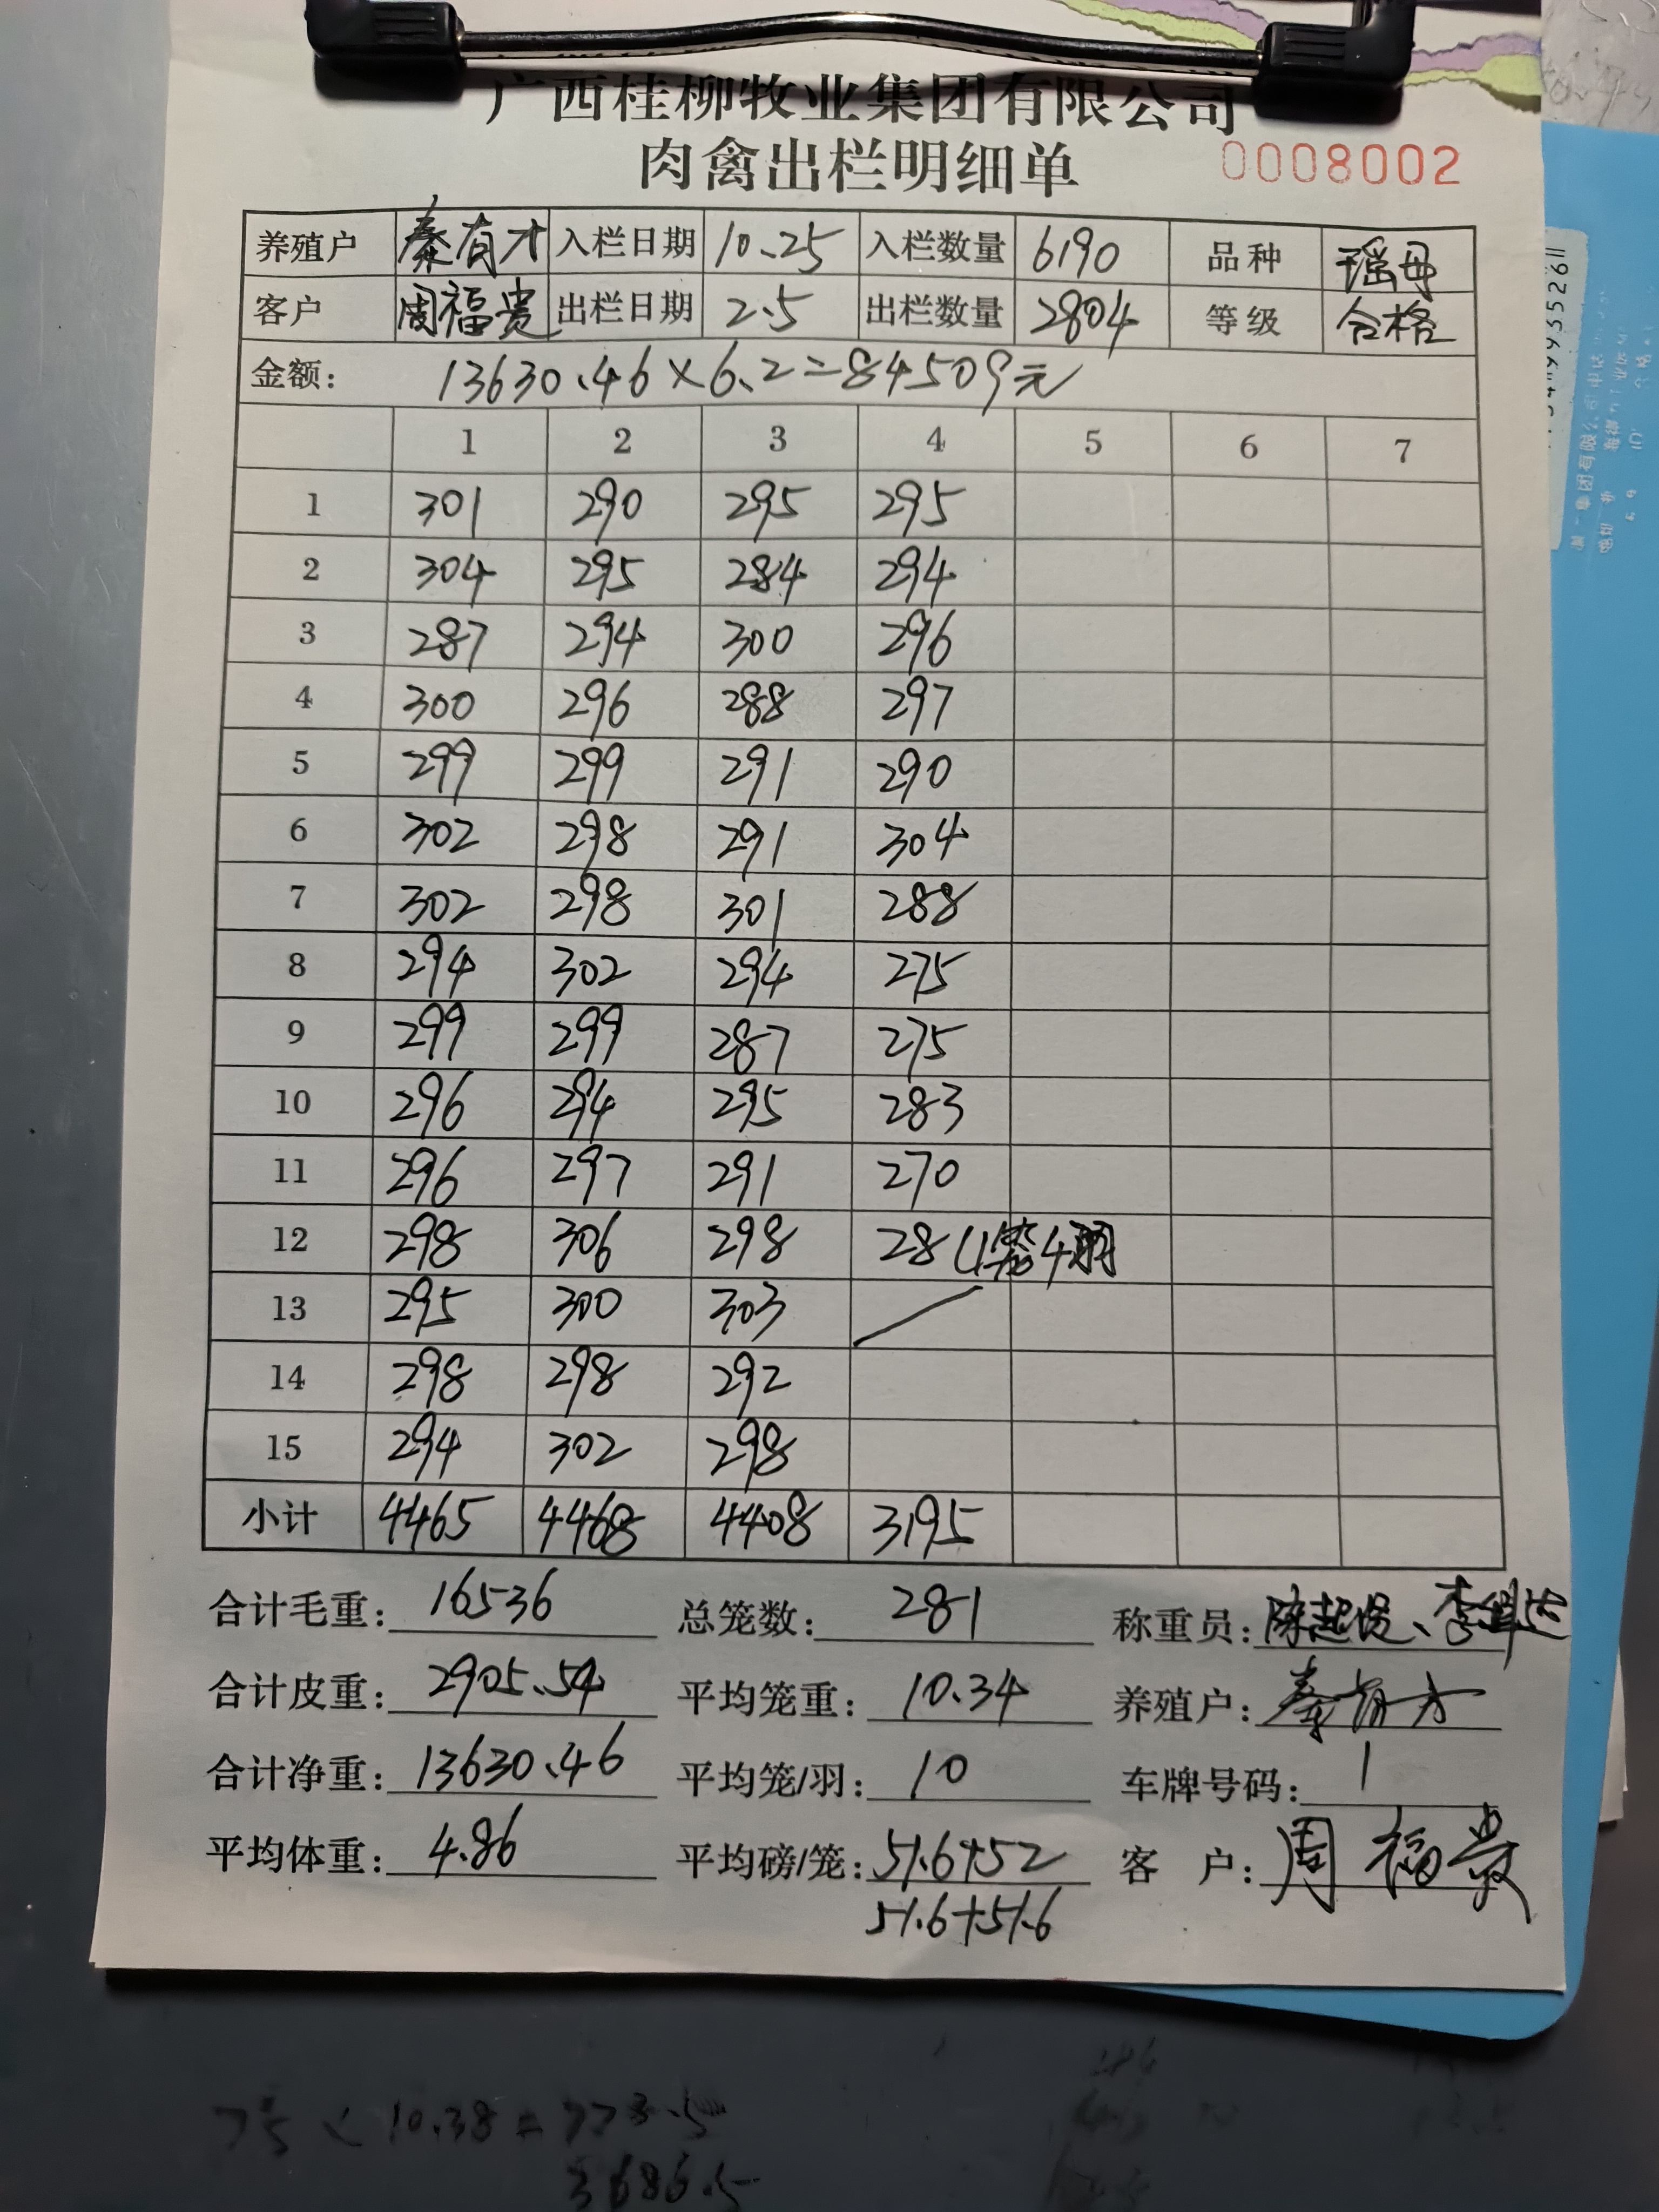 广西桂柳牧业集团有限公司
肉禽出栏明细单 0008002
养殖户 秦有才 入栏日期 10.25 入栏数量 6190 品种 瑶母
客户 周福贵 出栏日期 2.5 出栏数量 2804 等级 合格
金额: 13630.46×6.2=84509元
1 2 3 4 5 6 7
1 301 290 295 295
2 304 295 284 294
3 287 294 300 296
4 300 296 288 297
5 299 299 291 290
6 302 298 291 304
7 302 298 301 288
8 294 302 294 275
9 299 299 287 275
10 296 294 295 283
11 296 297 291 270
12 298 306 298 28 (1笼4羽
13 295 300 303
14 298 298 292
15 294 302 298
小计 4465 4468 4408 3195
合计毛重: 16536 总笼数: 281 称重员:
合计皮重: 2905.54 平均笼重: 10.34 养殖户: 秦有才
合计净重: 13630.46 平均笼/羽: 10 车牌号码: 1
平均体重: 4.86 平均磅/笼: 51.6+52 客 户: 周福贵
51.6+51.6
75×10.38=773.5
3686.5